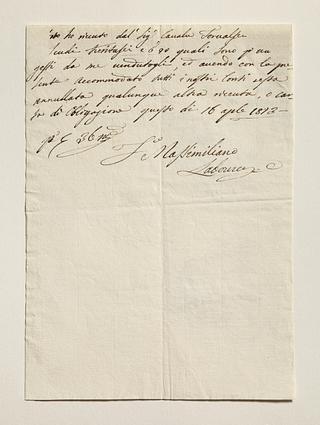 ho riceuto dal Sig.r Cavalie
Scudi trentasei e 90 quali sono p un
gessi da me vendutogli, ed avendo con la pre
sente accommodato tutti i nostri conti resta
annullata qualunque altra riceuta, o car-
ta di Obligazione questo di 16 aple 1813 —
Massimiliano
Laboureur